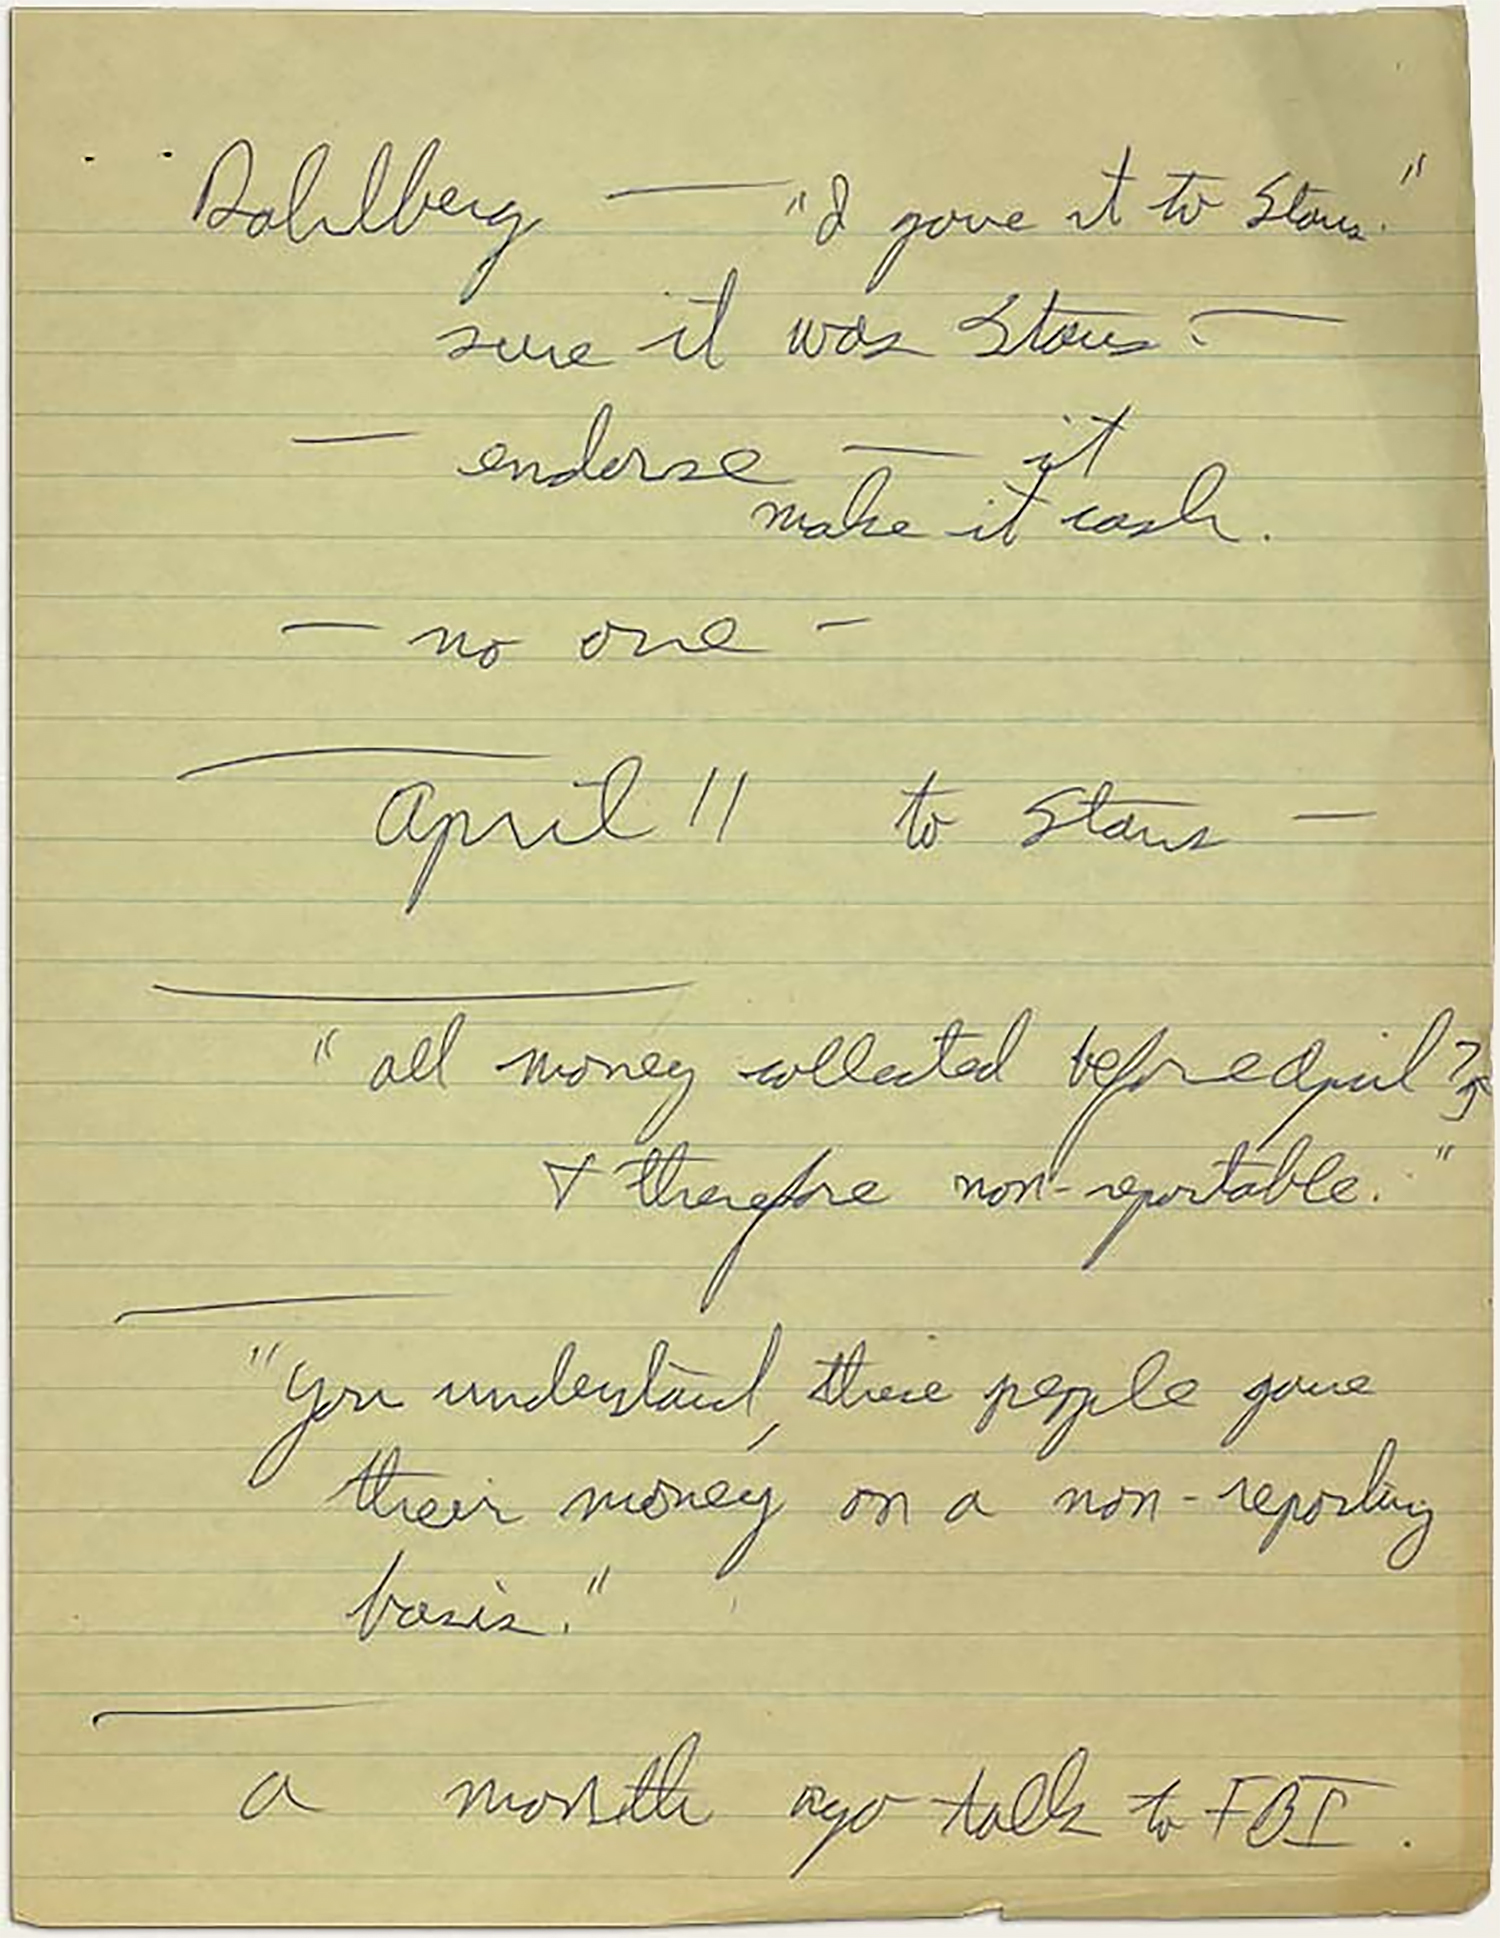 Dahlberg — "I gave it to Stans."
sure it was Stans. —
— endorse — it
make it cash.
— no one —
April 11 to Stans —
"all money collected before April 7
& therefore non-reportable."
"You understand, these people gave
their money on a non-reporting
basis."
a month ago talk to FBI.